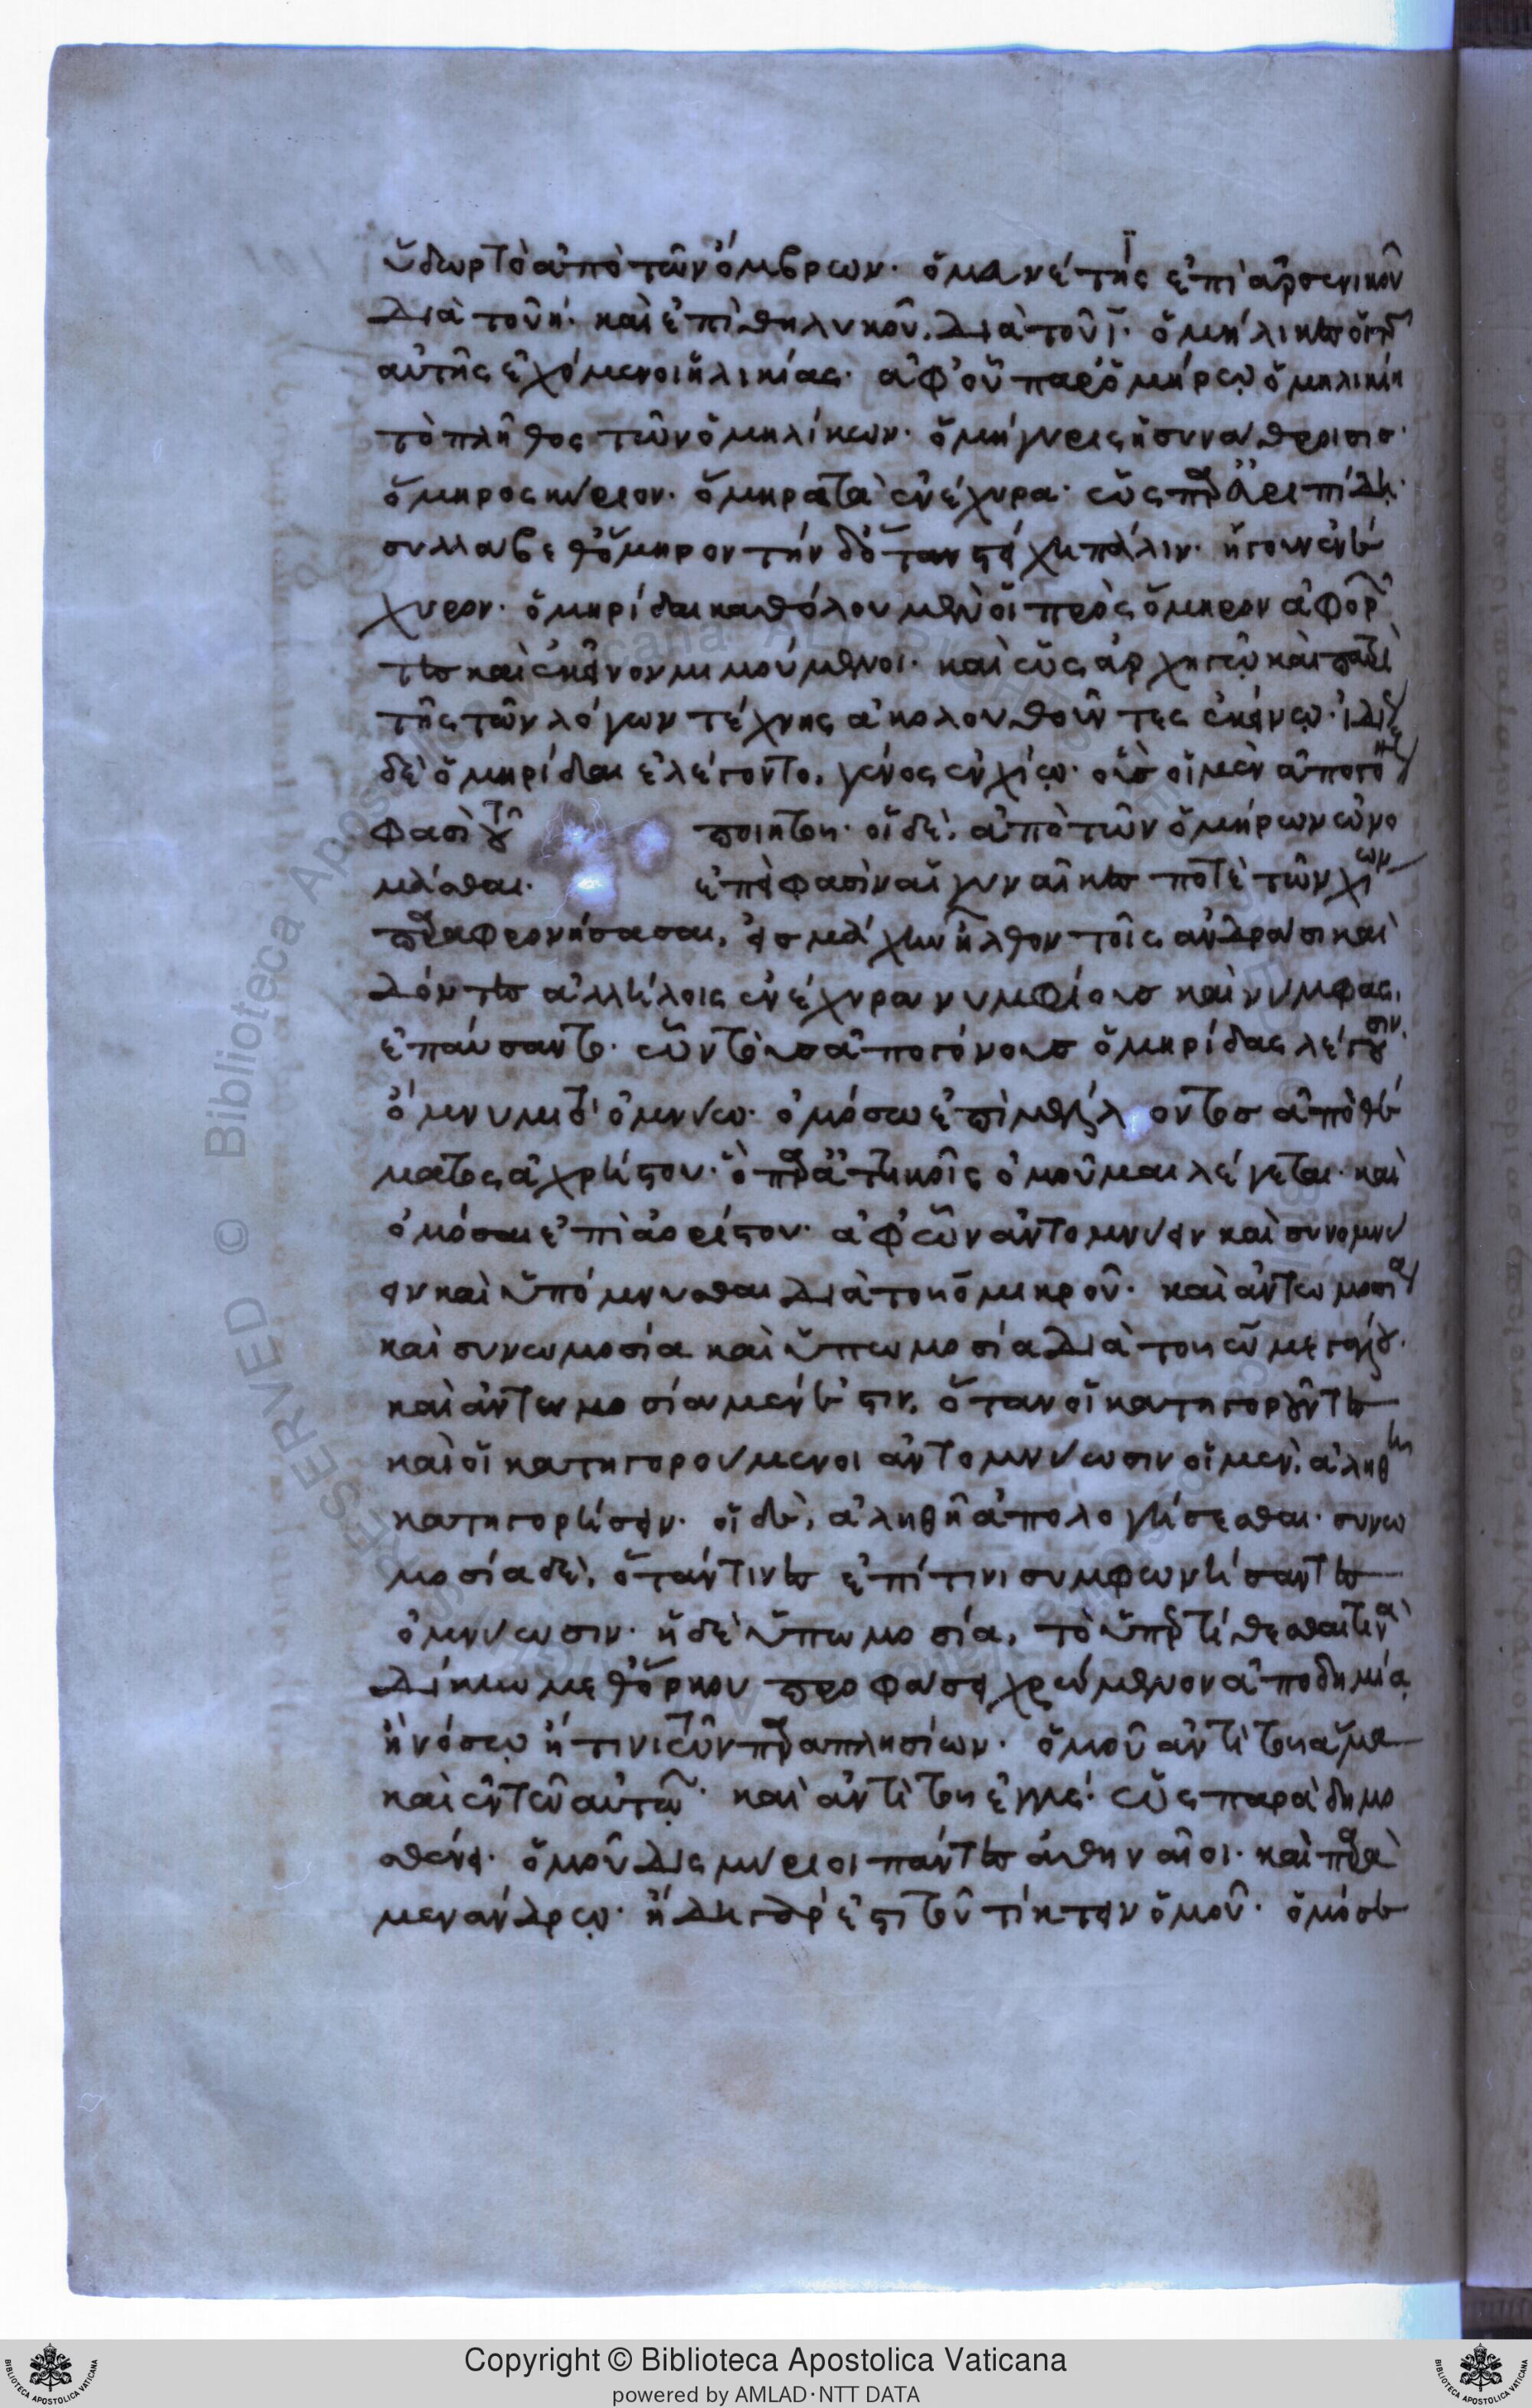 ὕδωρ τὸ ἀπὸ τῶν ὄμβρων· ὁμαινέτης ἐπὶ ἀρσενικοῦ
διὰ τοῦ η· καὶ ἐπὶ θηλυκοῦ, διὰ τοῦ ϊ· ὁμήλικες οἱ τῆς
αὐτῆς ἐχόμενοι ἡλικίας· ἀφ' οὗ παρ' ὁμήρῳ ὁμηλικίη
τὸ πλῆθος τῶν ὁμηλίκων· ὁμήγυρις ἡ συνάθροισις·
ὅμηρος κύριον· ὅμηρα τὰ ἐνέχυρα· ὡς παρ' εὐριπίδῃ·
σύλλαβε θ' ὅμηρον τήνδ' ὅταν στείχῃ πάλιν· ἤγουν ἐνέ
χυρον· ὁμηρίδαι καθόλου μὲν οἱ πρὸς ὅμηρον ἀφορῶν
τες καὶ ἐκεῖνον μιμούμενοι· καὶ ὡς ἀρχηγῷ καὶ πατρὶ
τῆς τῶν λόγων τέχνης ἀκολουθοῦντες ἐκείνῳ· ἰδίως
δὲ ὁμηρίδαι ἐλέγοντο, γένος ἐν χίῳ· οὓς οἱ μὲν ἀπογόνους
φασὶ τοῦ ποιητοῦ· οἱ δὲ, ἀπὸ τῶν ὁμήρων ὠνο
μάσθαι· ἐπεί φασιν αἱ γυναῖκες ποτὲ τῶν χίων
παραφρονήσασαι, εἰς μάχην ἦλθον τοῖς ἀνδράσι καὶ
δόντες ἀλλήλοις ἐνέχυρα νυμφίους καὶ νύμφας,
ἐπαύσαντο· ὧν τοὺς ἀπογόνους ὁμηρίδας λέγουσιν·
ὄμνυμι τὸ ὀμνύω· ὀμόσω ἐπὶ μέλλοντος ἀπὸ θέ
ματος ἀχρήστου· ὃ παρὰ ἀττικοῖς ὀμοῦμαι λέγεται· καὶ
ὀμόσαι ἐπὶ ἀορίστου· ἀφ' ὧν ἀντομνύειν καὶ συνομνύ
ειν καὶ ὑπόμνυσθαι διὰ τοῦ ο μικροῦ· καὶ ἀντωμοσία
καὶ συνωμοσία καὶ ὑπωμοσία διὰ τοῦ ω μεγάλου·
καὶ ἀντωμοσία μέν ἐστιν, ὅταν οἱ κατηγοροῦντες
καὶ οἱ κατηγορούμενοι ἀντομνύωσιν οἱ μὲν, ἀληθῆ
κατηγορήσειν· οἱ δὲ, ἀληθῆ ἀπολογήσεσθαι· συνω
μοσία δὲ, ὅταν τινὲς ἐπί τινι συμφωνήσαντες
ὀμνύωσιν· ἡ δὲ ὑπωμοσία, τὸ ὑπερτίθεσθαι τινὰ
δίκην μεθ' ὅρκου προφάσει χρώμενον ἀποδημίᾳ
ἢ νόσῳ ἤ τινι τῶν παραπλησίων· ὁμοῦ ἀντὶ τοῦ ἅμα
καὶ ἐν τῷ αὐτῷ· καὶ ἀντὶ τοῦ ἐγγύς· ὡς παρὰ δημο
σθένει· ὁμοῦ δισμύριοι πάντες ἀθηναῖοι· καὶ παρὰ
μενάνδρῳ· ἤδη γάρ ἐστι τοῦ τίκτειν ὁμοῦ· ὁμόσε